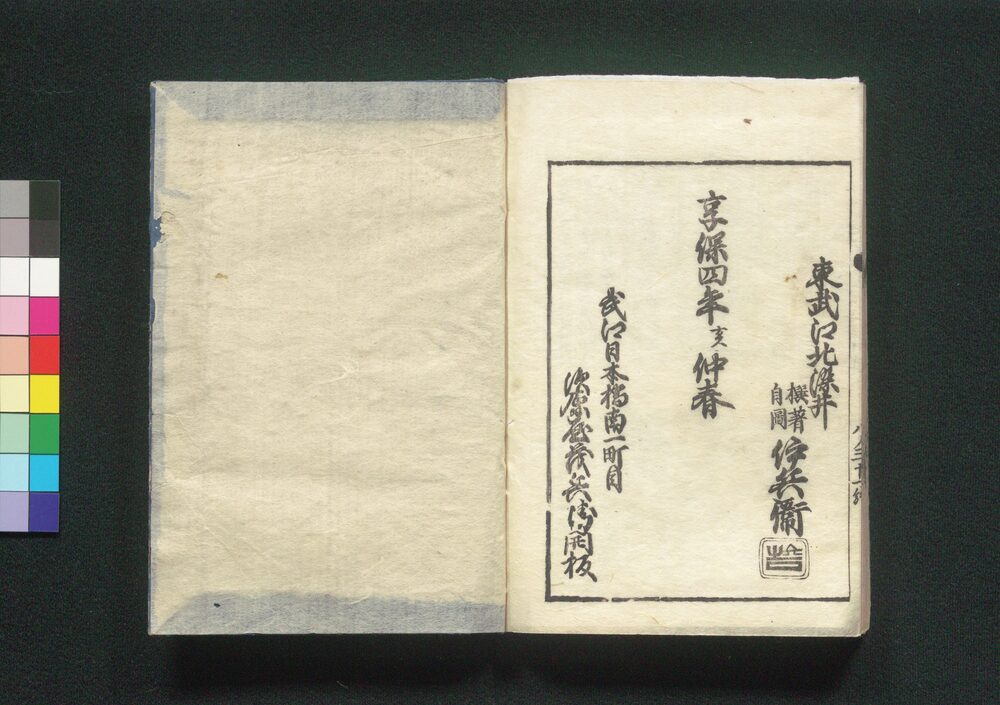 東武江北染井
撰著
自圖
伊兵衛
享保四年亥仲春
武江日本橋南一町目
須原屋茂兵衛開板